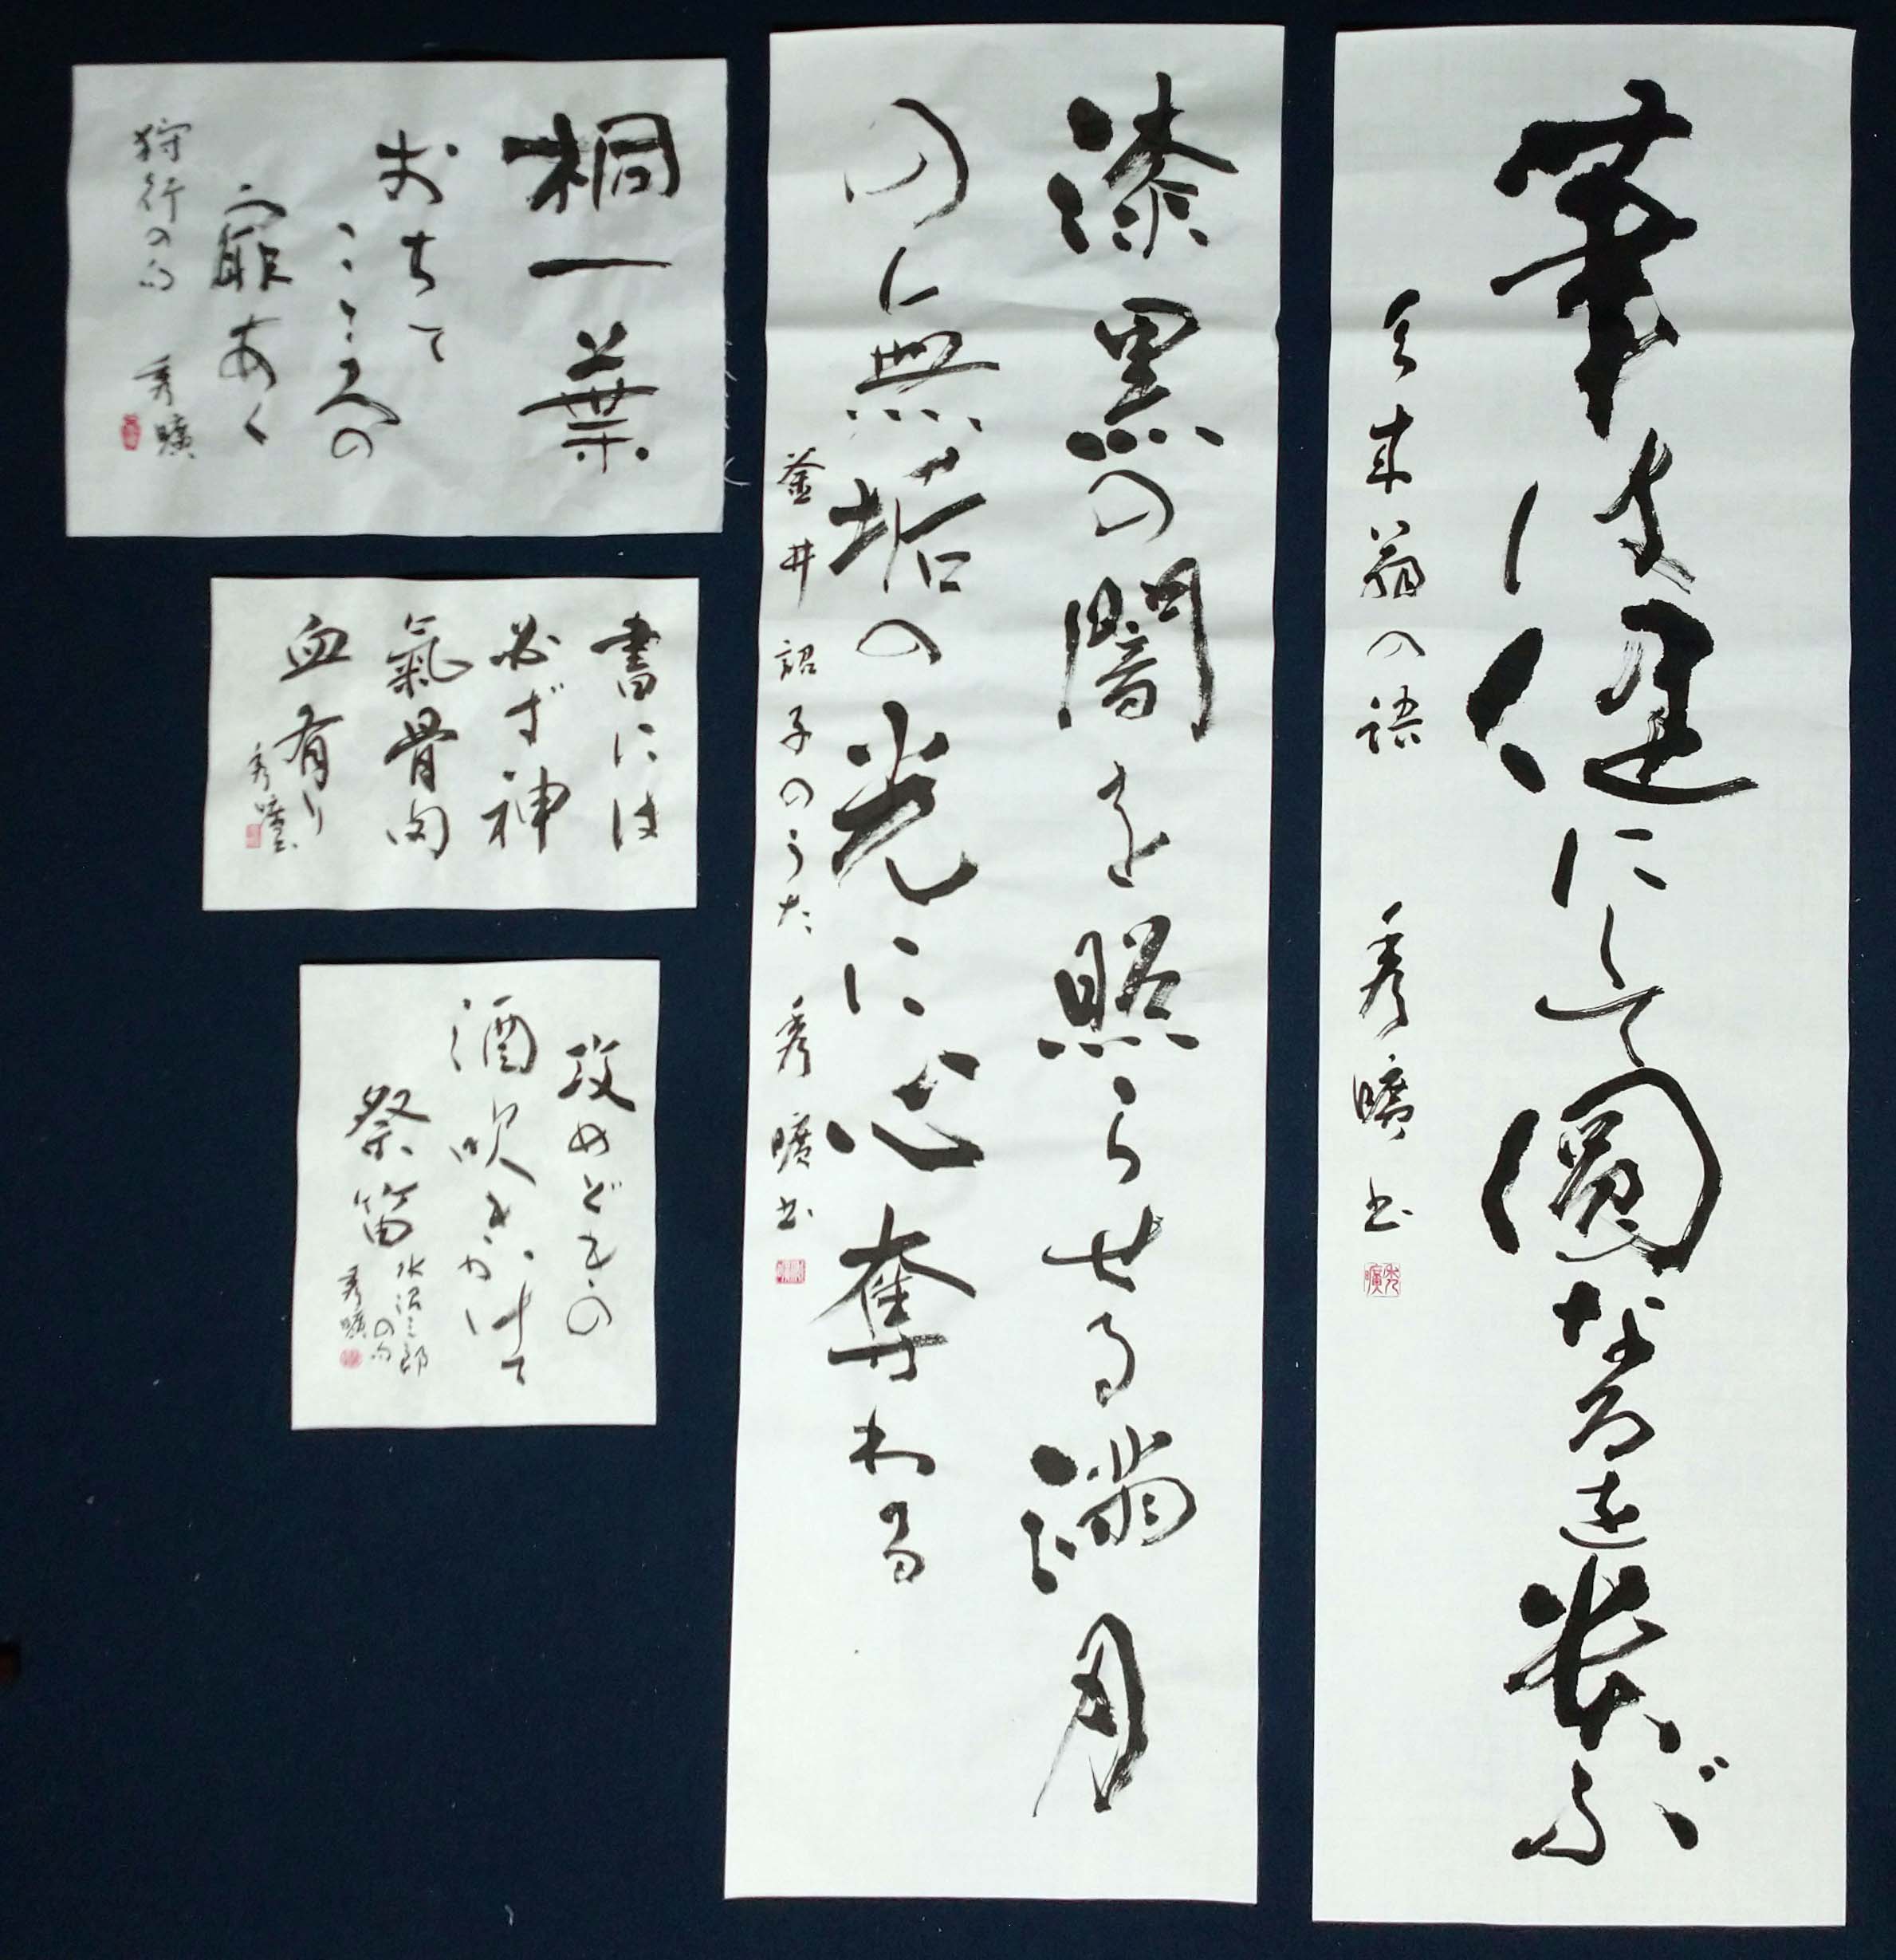 筆は健にして圓なるを貴ぶ
天来翁の語 秀曠書
漆黒の闇を照らせる満月
の無垢の光に心奪われる
釜井詔子のうた 秀曠書
桐一葉
おちて
こころの
扉あく
狩行の句 秀曠
書には
必ず神
氣骨肉
血有り
秀曠
攻めどきの
酒吹きかけて
祭笛
水沼三郎
の句
秀曠